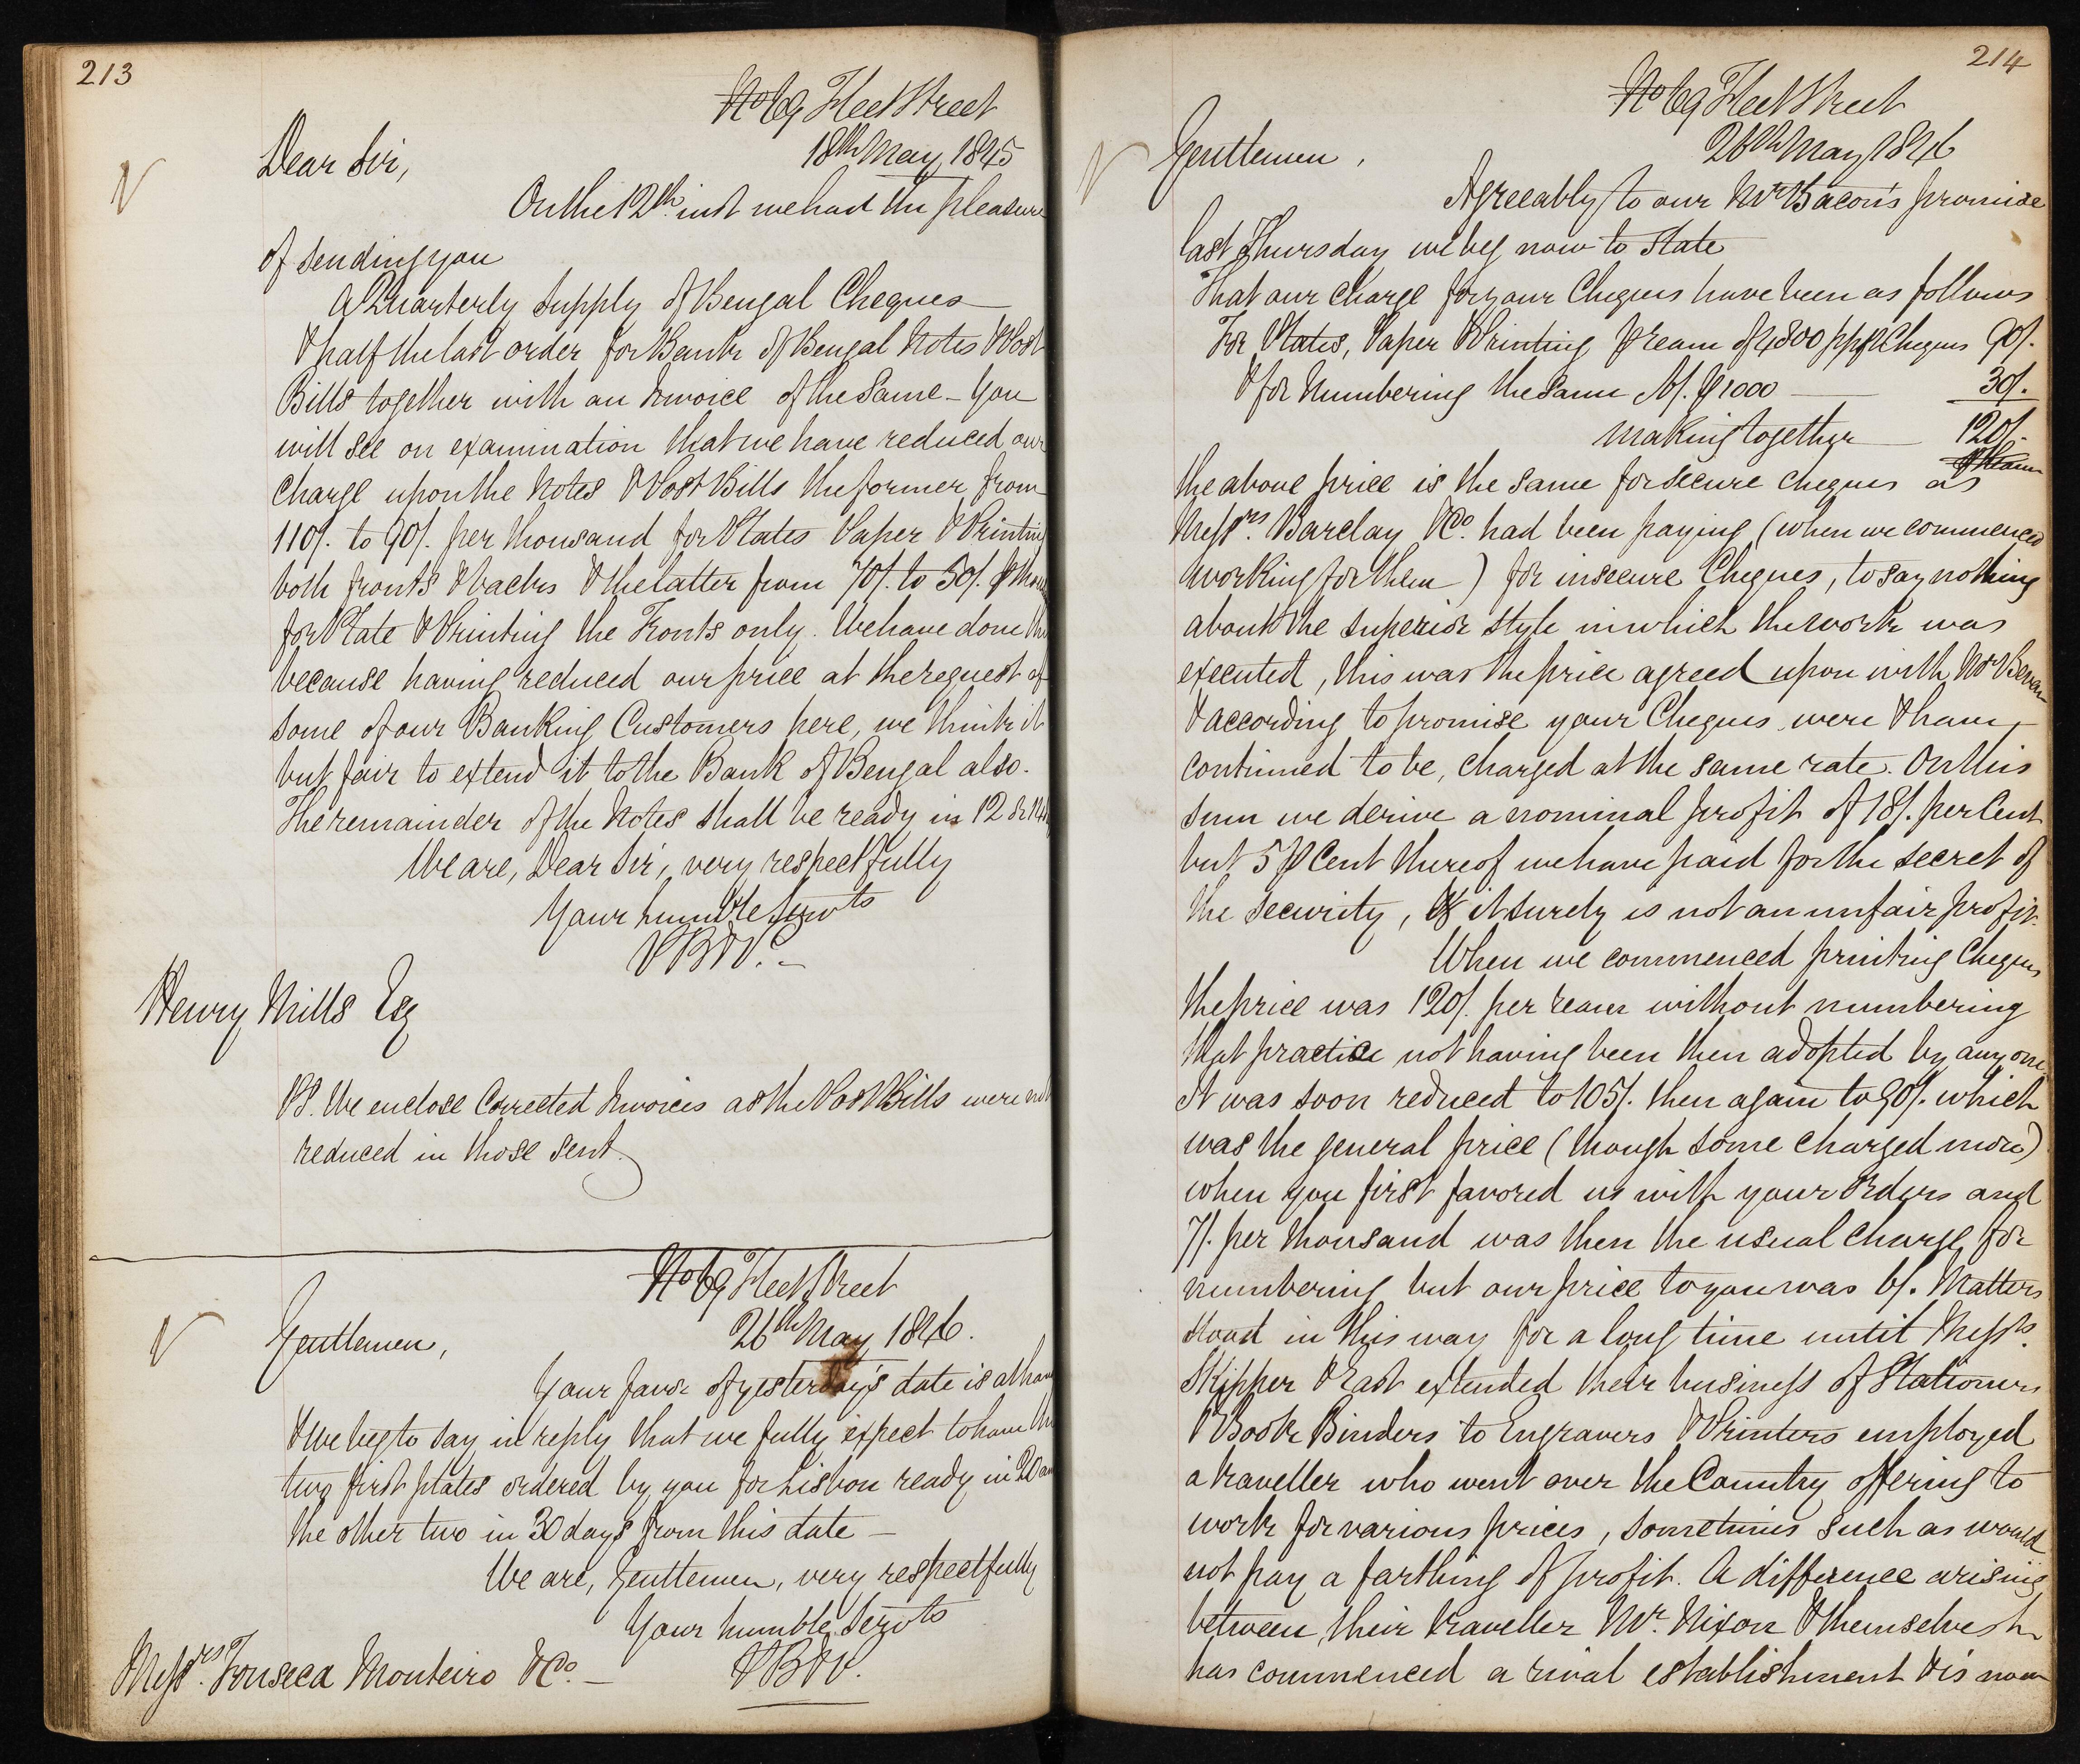 213
No 69 Fleet Street
18th May 1845
Dear Sir,
On the 12th inst we had the pleasure
of sending you
A Quarterly Supply of Bengal Cheques
& half the last order for Bank of Bengal Notes & Post
Bills together with an Invoice of the Same - You
will see on examination that we have reduced our
charge upon the Notes & Post Bills the former from
110/. to 90/. per thousand for Plates Paper & Printing
both fronts & backs & the latter from 70/. to 50/. ⅌ thou
for Plate & Printing the Fronts only. We have done this
because having reduced our price at the request of
some of our Banking Customers here, we think it
but fair to extend it to the Bank of Bengal also.
The remainder of the Notes shall be ready in 12 or 14
We are, Dear Sir, very respectfully
Your humble Servts
PB&P. -
Henry Mills Esq
PS. We enclose Corrected Invoices as the Post Bills were not
reduced in those sent.
No 69 Fleet Street
26th May 1846.
Gentlemen,
Your favor of yesterday's date is at hand
& we beg to say in reply that we fully expect to have the
two first plates ordered by you for Lisbon ready in 20 and
the other two in 30 days from this date -
We are, Gentlemen, very respectfully
Your humble Servts
PB&P.
Messrs. Fonseca Monteiro & Co. -
214
No 69 Fleet Street
26th May 1846
Gentlemen,
Agreeably to our Mr Bacon's promise
last Thursday we beg now to state
That our charge for your Cheques have been as follows
For Plates, Paper & Printing ⅌ ream of 4800 Cheques 90/.
& for Numbering the same ⅌ 1000 30/.
making together 120/.
⅌ Ream
the above price is the same for secure cheques as
Messrs. Barclay & Co. had been paying (when we commenced
working for them) for insecure Cheques, to say nothing
about the superior style in which the work was
executed, this was the price agreed upon with Mr Bevan
& according to promise your Cheques were & have
continued to be, charged at the same rate. On this
sum we derive a nominal profit of 18/. per Cent
but 5 ⅌ Cent thereof we have paid for the secret of
the security, & it surely is not an unfair profit.
When we commenced printing Cheques
the price was 120/. per ream without numbering
that practice not having been then adopted by any one.
It was soon reduced to 105/. then again to 90/. which
was the general price (though some charged more)
when you first favored us with your Orders and
7/. per thousand was then the usual charge for
numbering but our price to you was 6/. Matters
stood in this way for a long time until Messrs.
Skipper & East extended their business of Stationers
& Book Binders to Engravers & Printers employed
a traveller who went over the Country offering to
work for various prices, sometimes such as would
not pay a farthing of profit. A difference arising
between their traveller Mr. Nixon & themselves he
has commenced a rival establishment & is now